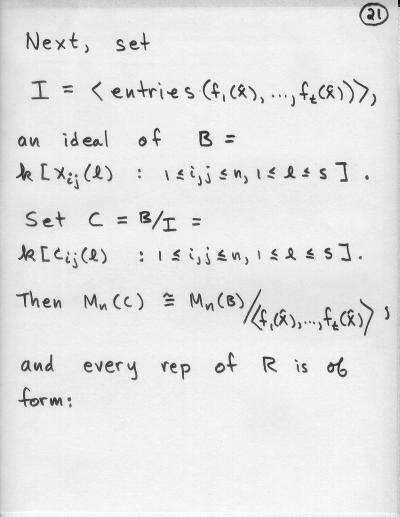 21
Next, set
I = < entries (f₁(x̂), ..., fₜ(x̂)) >,
an ideal of B =
k[xᵢⱼ(l) : 1 ≤ i,j ≤ n, 1 ≤ l ≤ s].
Set C = B/I =
k[cᵢⱼ(l) : 1 ≤ i,j ≤ n, 1 ≤ l ≤ s].
Then Mₙ(C) ≅ Mₙ(B)/<f₁(x̂), ..., fₜ(x̂)>,
and every rep of R is of
form: